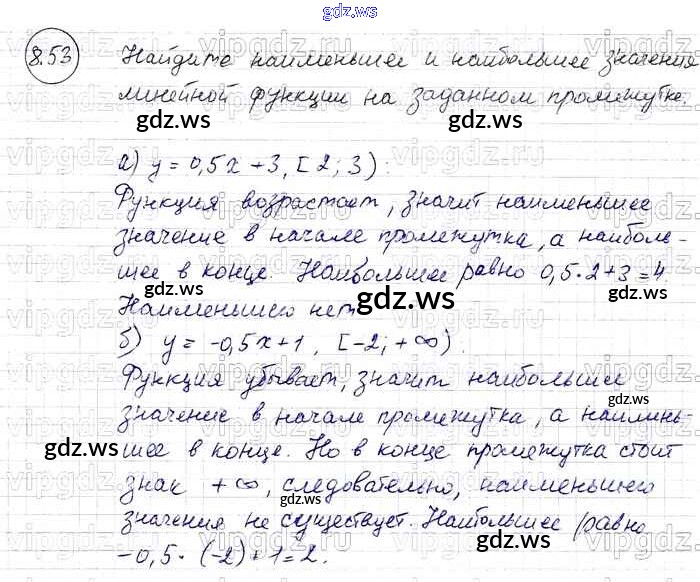 gdz.ws
8.53 Найдите наименьшее и наибольшее значения
линейной функции на заданном промежутке.
gdz.ws gdz.ws
а) y = 0,5x + 3, [2; 3):
Функция возрастает, значит наименьшее
значение в начале промежутка, а наиболь-
шее в конце. Наибольшее равно 0,5·2+3=4
gdz.ws
Наименьшего нет
б) y = -0,5x+1, [-2; +∞):
Функция убывает, значит наибольшее
значение в начале промежутка, а наимень-
gdz.ws gdz.ws
шее в конце. Но в конце промежутка стоит
знак +∞, следовательно, наименьшего
gdz.ws
значения не существует. Наибольшее равно
-0,5·(-2)+1=2.
gdz.ws gdz.ws